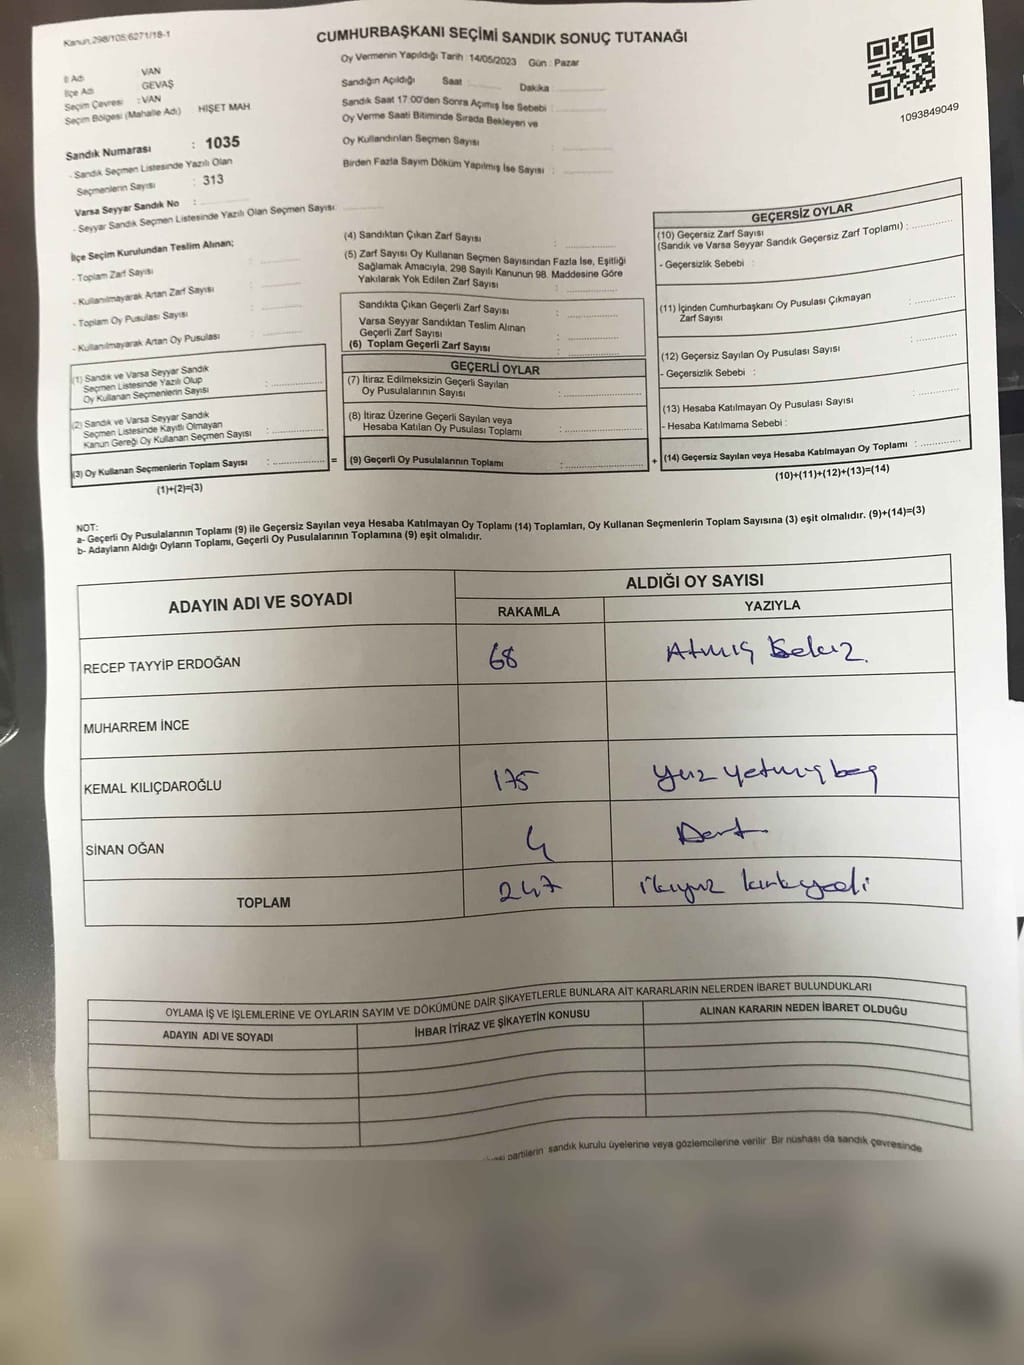 Kanun,298/105;6271/18-1
CUMHURBAŞKANI SEÇİMİ SANDIK SONUÇ TUTANAĞI
Oy Vermenin Yapıldığı Tarih : 14/05/2023 Gün : Pazar
İl Adı VAN
İlçe Adı GEVAŞ
Seçim Çevresi : VAN
Seçim Bölgesi (Mahalle Adı) HİŞET MAH
Sandık Numarası : 1035
- Sandık Seçmen Listesinde Yazılı Olan
Seçmenlerin Sayısı : 313
Varsa Seyyar Sandık No :
- Seyyar Sandık Seçmen Listesinde Yazılı Olan Seçmen Sayısı:
Sandığın Açıldığı Saat Dakika
Sandık Saat 17:00'den Sonra Açımış İse Sebebi :
Oy Verme Saati Bitiminde Sırada Bekleyen ve
Oy Kullandırılan Seçmen Sayısı :
Birden Fazla Sayım Döküm Yapılmış İse Sayısı :
1093849049
İlçe Seçim Kurulundan Teslim Alınan;
- Toplam Zarf Sayısı :
- Kullanılmayarak Artan Zarf Sayısı :
- Toplam Oy Pusulası Sayısı :
- Kullanılmayarak Artan Oy Pusulası :
(1) Sandık ve Varsa Seyyar Sandık
Seçmen Listesinde Yazılı Olup
Oy Kullanan Seçmenlerin Sayısı :
(2) Sandık ve Varsa Seyyar Sandık
Seçmen Listesinde Kayıtlı Olmayan
Kanun Gereği Oy Kullanan Seçmen Sayısı :
(3) Oy Kullanan Seçmenlerin Toplam Sayısı : =
(1)+(2)=(3)
(4) Sandıktan Çıkan Zarf Sayısı :
(5) Zarf Sayısı Oy Kullanan Seçmen Sayısından Fazla İse, Eşitliği
Sağlamak Amacıyla, 298 Sayılı Kanunun 98. Maddesine Göre
Yakılarak Yok Edilen Zarf Sayısı :
Sandıkta Çıkan Geçerli Zarf Sayısı :
Varsa Seyyar Sandıktan Teslim Alınan
Geçerli Zarf Sayısı :
(6) Toplam Geçerli Zarf Sayısı :
GEÇERLİ OYLAR
(7) İtiraz Edilmeksizin Geçerli Sayılan
Oy Pusulalarının Sayısı :
(8) İtiraz Üzerine Geçerli Sayılan veya
Hesaba Katılan Oy Pusulası Toplamı :
(9) Geçerli Oy Pusulalarının Toplamı : +
GEÇERSİZ OYLAR
(10) Geçersiz Zarf Sayısı
(Sandık ve Varsa Seyyar Sandık Geçersiz Zarf Toplamı) :
- Geçersizlik Sebebi :
(11) İçinden Cumhurbaşkanı Oy Pusulası Çıkmayan
Zarf Sayısı :
(12) Geçersiz Sayılan Oy Pusulası Sayısı :
- Geçersizlik Sebebi :
(13) Hesaba Katılmayan Oy Pusulası Sayısı :
- Hesaba Katılmama Sebebi :
(14) Geçersiz Sayılan veya Hesaba Katılmayan Oy Toplamı :
(10)+(11)+(12)+(13)=(14)
NOT:
a- Geçerli Oy Pusulalarının Toplamı (9) ile Geçersiz Sayılan veya Hesaba Katılmayan Oy Toplamı (14) Toplamları, Oy Kullanan Seçmenlerin Toplam Sayısına (3) eşit olmalıdır. (9)+(14)=(3)
b- Adayların Aldığı Oyların Toplamı, Geçerli Oy Pusulalarının Toplamına (9) eşit olmalıdır.
ADAYIN ADI VE SOYADI ALDIĞI OY SAYISI
RAKAMLA YAZIYLA
RECEP TAYYİP ERDOĞAN 68 Atmış Sekiz.
MUHARREM İNCE
KEMAL KILIÇDAROĞLU 175 yüz yetmiş beş
SİNAN OĞAN 4 Dört
TOPLAM 247 ikiyüz kırkyedi
OYLAMA İŞ VE İŞLEMLERİNE VE OYLARIN SAYIM VE DÖKÜMÜNE DAİR ŞİKAYETLERLE BUNLARA AİT KARARLARIN NELERDEN İBARET BULUNDUKLARI
ADAYIN ADI VE SOYADI İHBAR İTİRAZ VE ŞİKAYETİN KONUSU ALINAN KARARIN NEDEN İBARET OLDUĞU
partilerin sandık kurulu üyelerine veya gözlemcilerine verilir Bir nüshası da sandık çevresinde